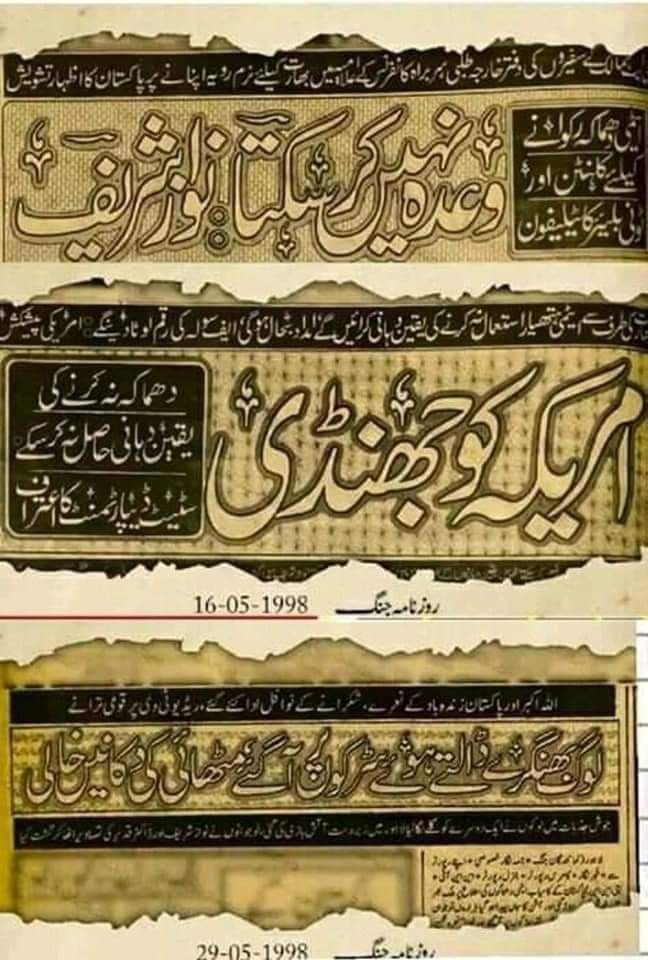 ممالک کے سفیروں کی دفتر خارجہ طلبی سربراہ کانفرنس کے اعلامیہ میں بھارت کیلئے نرم رویہ اپنانے پر پاکستان کا اظہار تشویش
ایٹمی دھماکہ رکوانے
کیلئے کلنٹن اور
ٹونی بلیئر کا ٹیلیفون
وعدہ نہیں کر سکتا: نواز شریف
کی طرف سے ایٹمی ہتھیار استعمال نہ کرنے کی یقین دہانی کرائیں گے امداد بحال ہوگی ایف سولہ کی رقم لوٹا دینگے: امریکی پیشکش
امریکہ کو جھنڈی
دھماکہ نہ کرنے کی
یقین دہانی حاصل نہ کر سکے
سٹیٹ ڈیپارٹمنٹ کا اعتراف
روزنامہ جنگ 16-05-1998
اللہ اکبر اور پاکستان زندہ باد کے نعرے، شکرانے کے نوافل ادا کئے گئے، ریڈیو ٹی وی پر قومی ترانے
لوگ بھنگڑے ڈالتے ہوئے سڑکوں پر آ گئے مٹھائی کی دکانیں خالی
جوش جذبات میں لوگوں نے ایک دوسرے کو گلے لگا لیا لاہور میں زبردست آتش بازی کی گئی، نوجوانوں نے نواز شریف اور ڈاکٹر قدیر کی تصاویر اٹھا کر گشت کیا
روزنامہ جنگ 29-05-1998